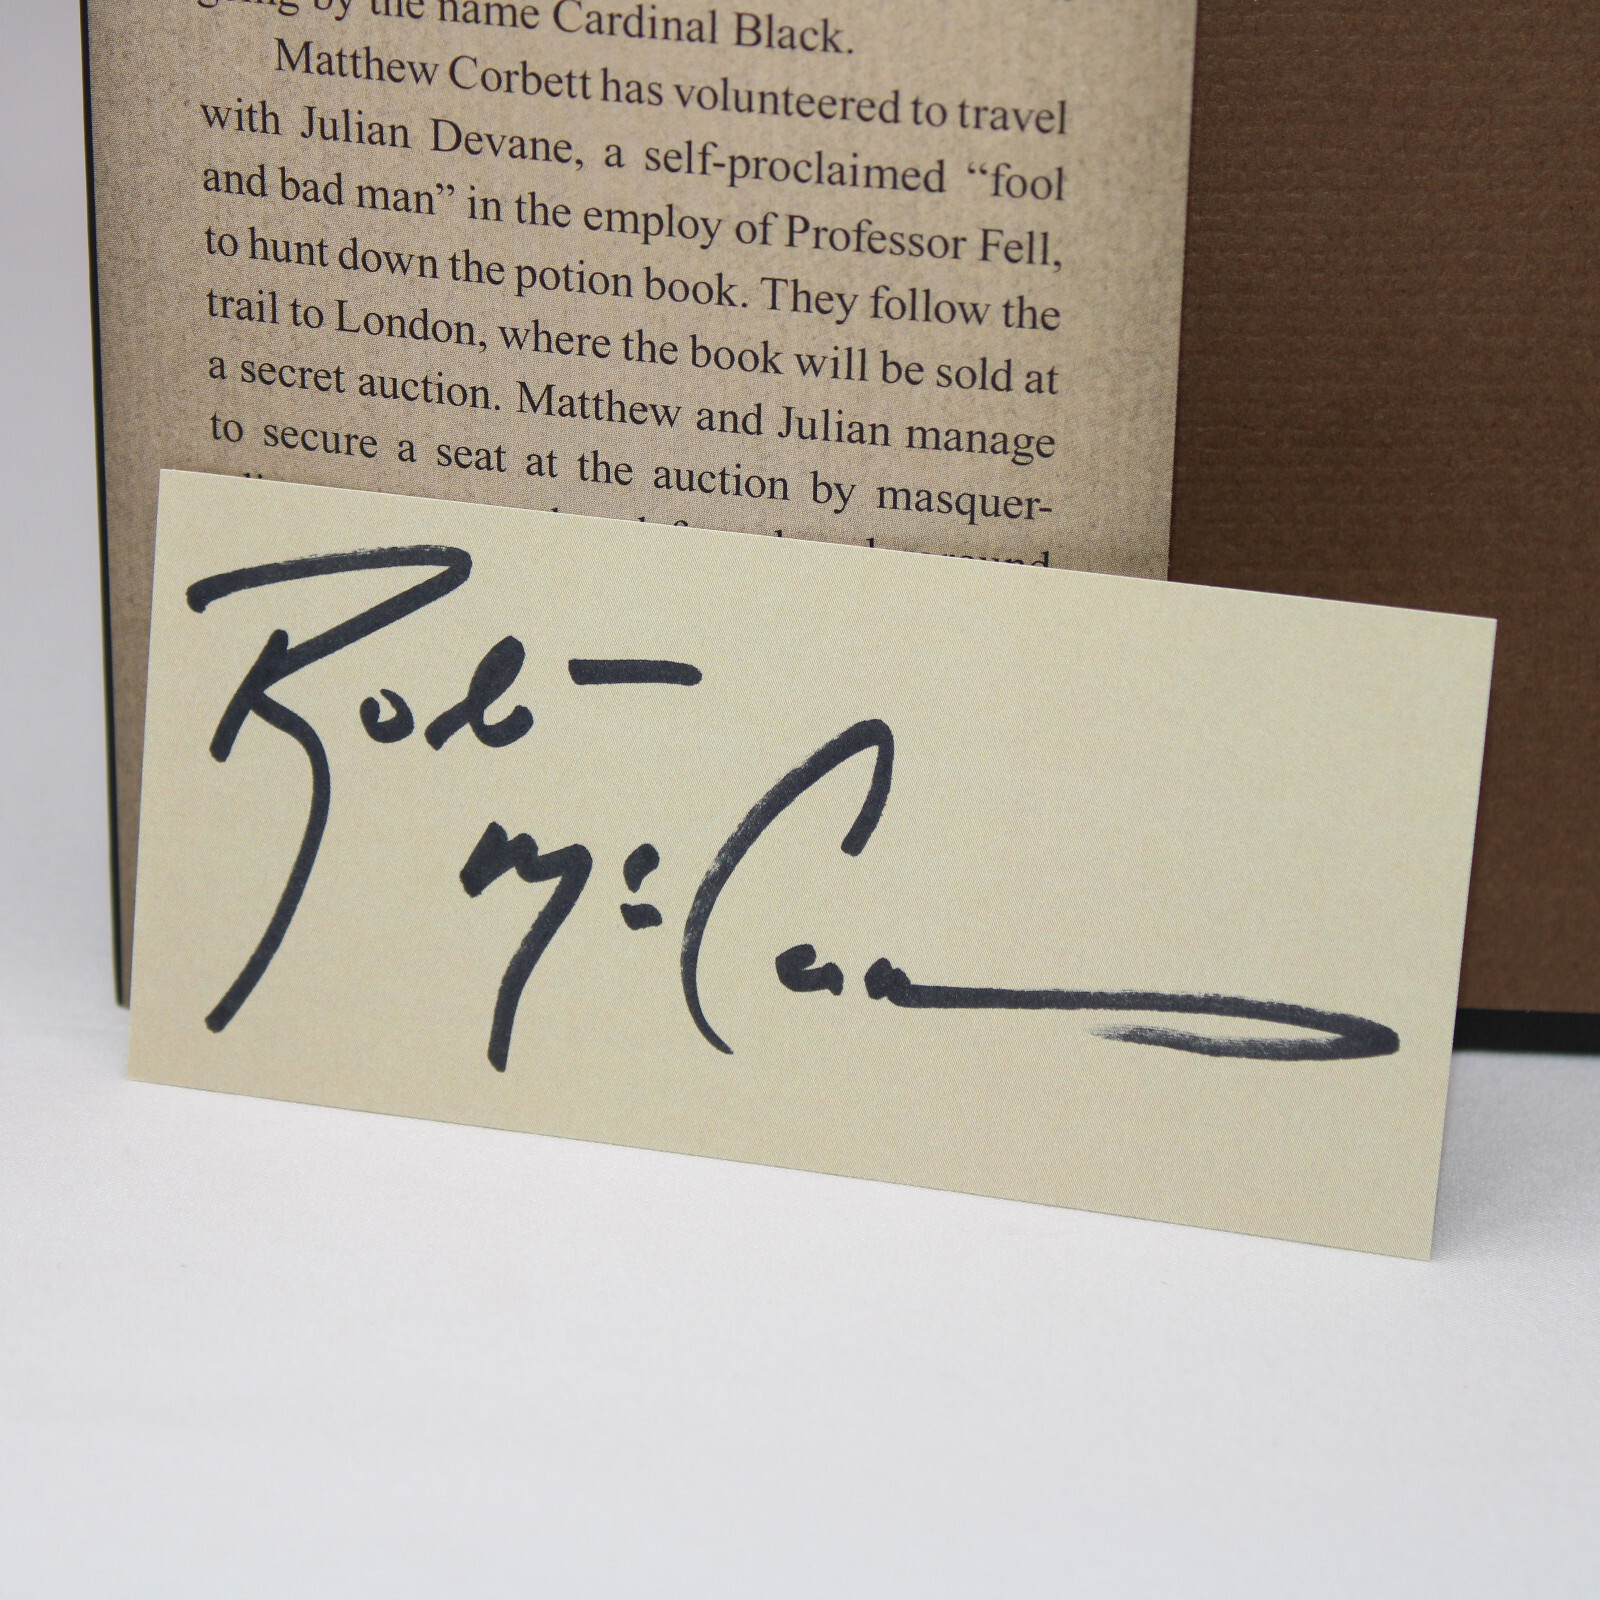 going by the name Cardinal Black.
Matthew Corbett has volunteered to travel
with Julian Devane, a self-proclaimed “fool
and bad man” in the employ of Professor Fell,
to hunt down the potion book. They follow the
trail to London, where the book will be sold at
a secret auction. Matthew and Julian manage
to secure a seat at the auction by masquer-
Robert
McCammon